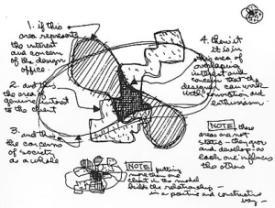 1. if this
area represents
the interest
and concern
of the design
office.
2. and this
the area of
genuine interest
to the client
3. and this
the concerns
of society
as a whole
4. then it
is in this
area of
overlapping
interest and
concern that the
designer can work
with conviction and
enthusiasm
NOTE: these
areas are not
static – they grow
and develop – as
each one influences
the others
NOTE: putting
more than one
client in the model
builds the relationship –
in a positive and constructive
way –